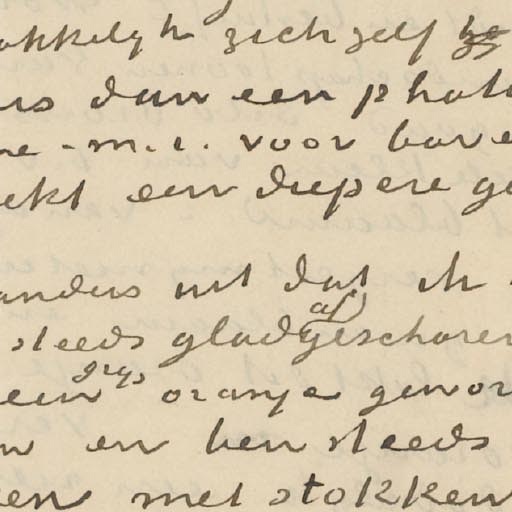 akkelyk zich zelf
us dan een phot
ne - m.i. voor bove
ekt een diepere ge
anders uit dat ik
steeds glad af geschoren
een grys oranje gewor
en ben steeds
en met stokken